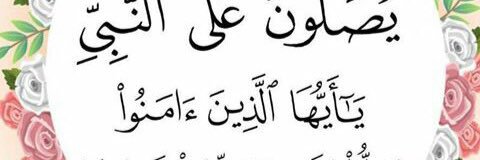 يُصَلُّونَ عَلَى ٱلنَّبِيِّ
يَـٰٓأَيُّهَا ٱلَّذِينَ ءَامَنُوا۟